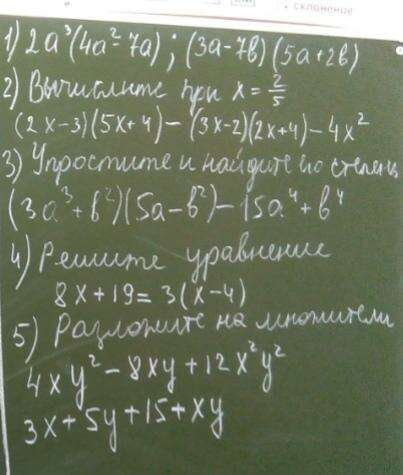 склонение
1) 2a³(4a²-7a); (3a-7b)(5a+2b)
2) Вычислите при x = 2/5
(2x-3)(5x+4) - (3x-2)(2x+4) - 4x²
3) Упростите и найдите его степень
(3a³+b²)(5a-b²) - 15a⁴ + b⁴
4) Решите уравнение
8x+19=3(x-4)
5) Разложите на множители
4xy² - 8xy + 12x²y²
3x+5y+15+xy